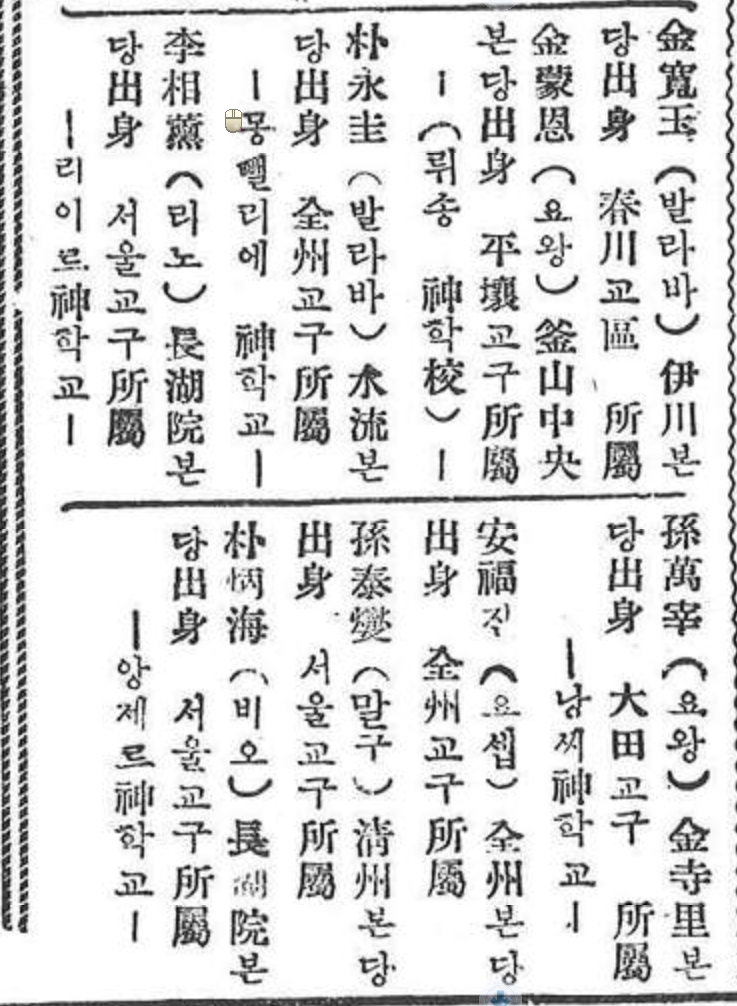 金寬玉（발라바）伊川본
당出身 春川교區 所屬
金蒙恩（요왕）釜山中央
본당出身 平壤교구所屬
ー（뤼송 神학校）ー
朴永圭（발라바）水流본
당出身 全州교구所屬
ー몽뻴리에 神학교ー
李相薰（리노）長湖院본
당出身 서울교구所屬
ー리이르神학교ー
孫萬宰（요왕）金寺里본
당出身 大田교구 所屬
ー낭찌神학교ー
安福직（요셉）全州본당
出身 全州교구所屬
孫泰燮（말구）淸州본당
出身 서울교구所屬
朴炳海（비오）長湖院본
당出身 서울교구所屬
ー앙제르神학교ー